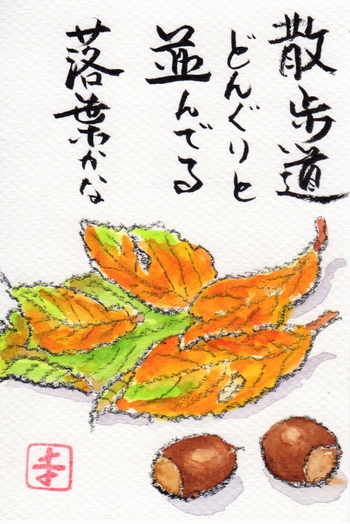 散歩道
どんぐりと
並んでる
落葉かな